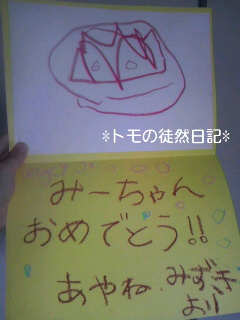 *トモの徒然日記*
みーちゃん
おめでとう!!
あやね、みずき
より